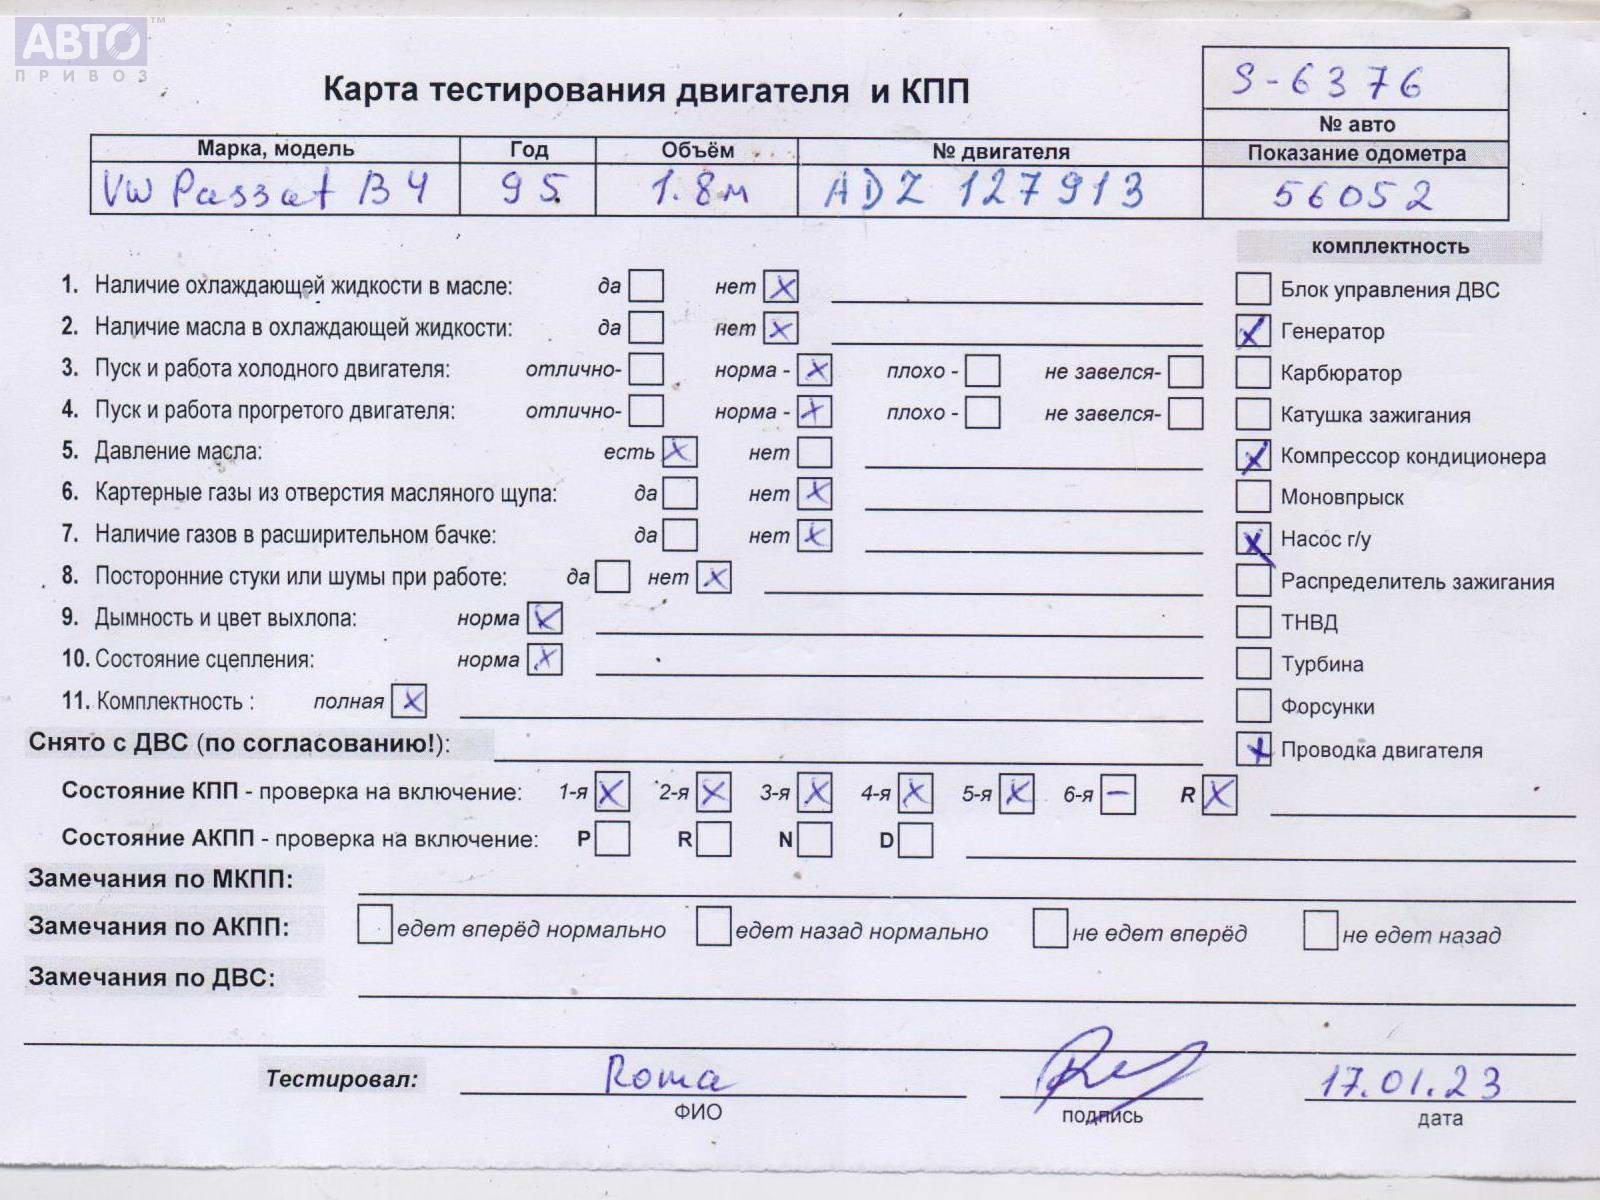 АВТО™
ПРИВОЗ
S-6376
Карта тестирования двигателя и КПП
№ авто
Марка, модель Год Объём № двигателя Показание одометра
VW Passat B4 95 1.8м ADZ 127913 56052
комплектность
1. Наличие охлаждающей жидкости в масле: да нет X
Блок управления ДВС
2. Наличие масла в охлаждающей жидкости: да нет X
X Генератор
3. Пуск и работа холодного двигателя: отлично- норма - X плохо - не завелся-
Карбюратор
4. Пуск и работа прогретого двигателя: отлично- норма - X плохо - не завелся-
Катушка зажигания
5. Давление масла: есть X нет
X Компрессор кондиционера
6. Картерные газы из отверстия масляного щупа: да нет X
Моновпрыск
7. Наличие газов в расширительном бачке: да нет X
X Насос г/у
8. Посторонние стуки или шумы при работе: да нет X
Распределитель зажигания
9. Дымность и цвет выхлопа: норма X
ТНВД
10. Состояние сцепления: норма X
Турбина
11. Комплектность : полная X
Форсунки
Снято с ДВС (по согласованию!):
X Проводка двигателя
Состояние КПП - проверка на включение: 1-я X 2-я X 3-я X 4-я X 5-я X 6-я – R X
Состояние АКПП - проверка на включение: P R N D
Замечания по МКПП:
Замечания по АКПП: едет вперёд нормально едет назад нормально не едет вперёд не едет назад
Замечания по ДВС:
Тестировал: Roma 17.01.23
ФИО подпись дата